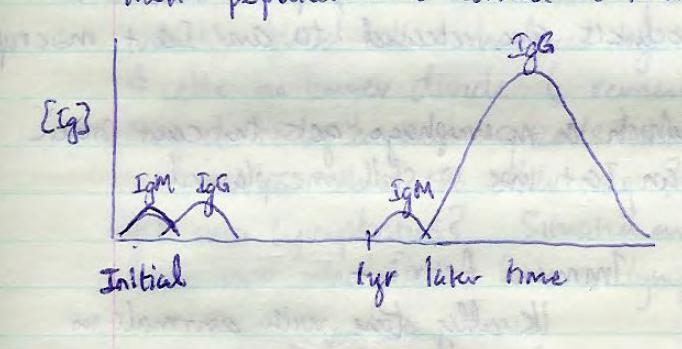 IgG
[Ig]
IgM IgG IgM
Initial 1yr later time